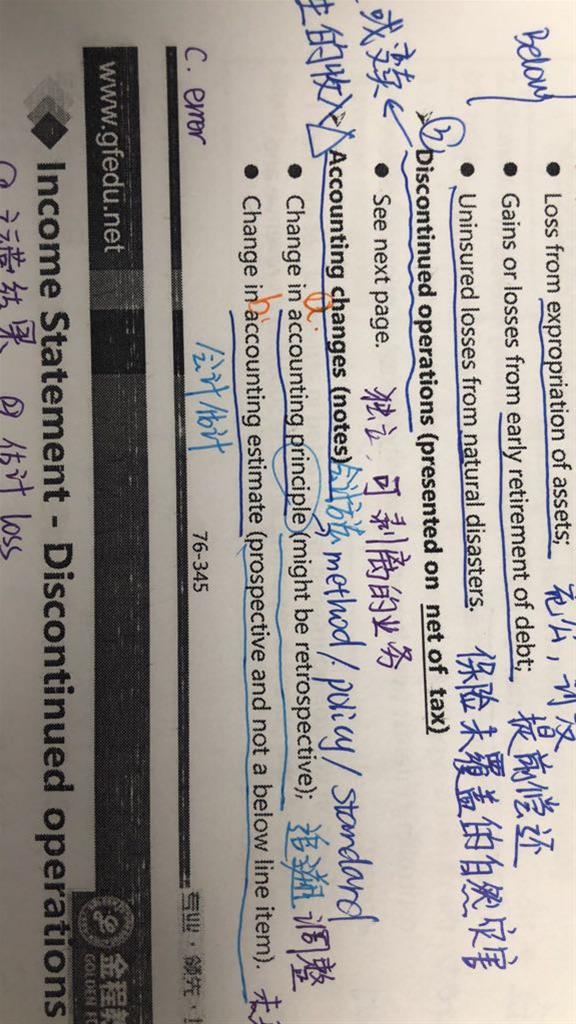 Below
● Loss from expropriation of assets; 充公,
● Gains or losses from early retirement of debt; 提前偿还
● Uninsured losses from natural disasters. 保险未覆盖的自然灾害
③ Discontinued operations (presented on net of tax)
● See next page. 独立,可剥离的业务
Accounting changes (notes) 会计方法 method / policy / standard
a.
● Change in accounting principle (might be retrospective); 追溯调整
b.
● Change in accounting estimate (prospective and not a below line item).
会计估计
C. error
76-345
专业·领先·
www.gfedu.net
金程教
GOLDEN F
Income Statement - Discontinued operations
估计 loss